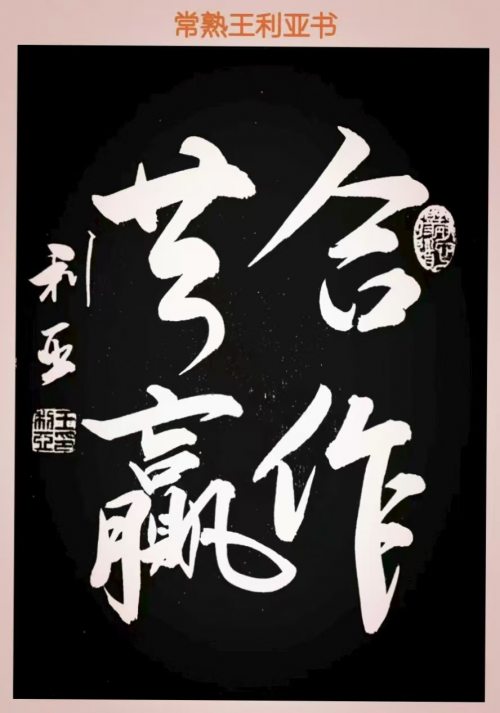 常熟王利亚书
合作
共赢
利亚
王利亚印